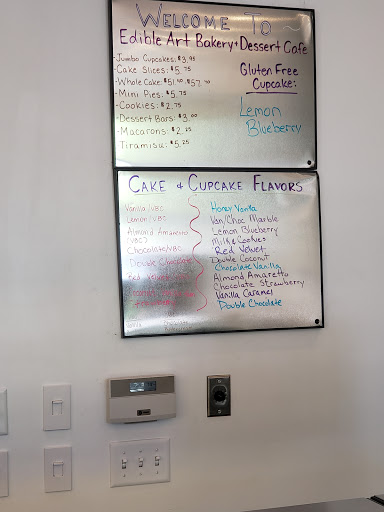 Welcome To
Edible Art Bakery + Dessert Cafe
-Jumbo Cupcakes: $3.95
-Cake Slices: $5.75
-Whole Cake:
-Mini Pies: $5.75
-Cookies: $2.75
-Dessert Bars: $3.00
-Macarons: $2.25
Tiramisu: $5.25
Gluten Free
Cupcake:
Lemon
Blueberry
Cake & Cupcake Flavors
Vanilla/VBC
Lemon/VBC
Almond Amaretto
/VBC
Chocolate/VBC
Double Chocolate
Red
Honey Vanilla
Van/Choc Marble
Lemon Blueberry
Milk & Cookies
Red Velvet
Double Coconut
Chocolate Vanilla
Almond Amaretto
Chocolate Strawberry
Vanilla Caramel
Double Chocolate